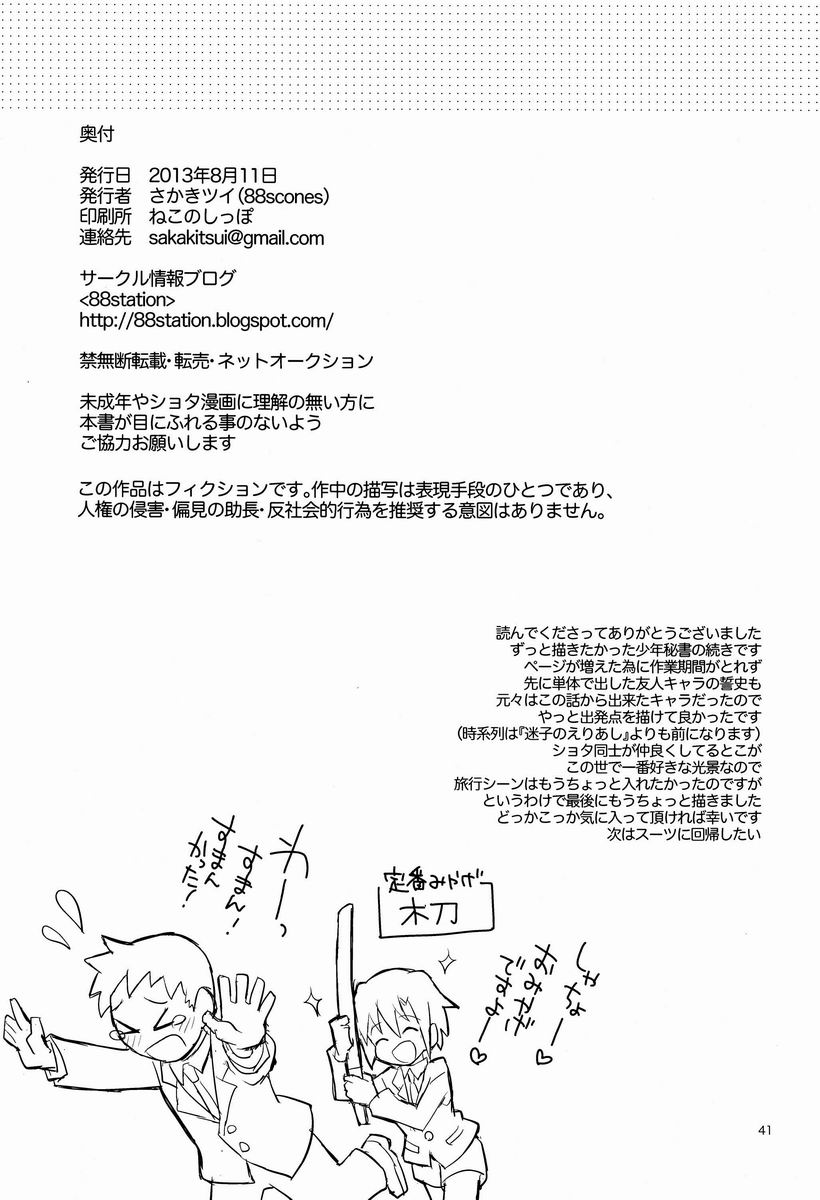 奥付
発行日　2013年8月11日
発行者　さかきツイ(88scones)
印刷所　ねこのしっぽ
連絡先　sakakitsui@gmail.com
サークル情報ブログ
<88station>
http://88station.blogspot.com/
禁無断転載・転売・ネットオークション
未成年やショタ漫画に理解の無い方に
本書が目にふれる事のないよう
ご協力お願いします
この作品はフィクションです。作中の描写は表現手段のひとつであり、
人権の侵害・偏見の助長・反社会的行為を推奨する意図はありません。
読んでくださってありがとうございました
ずっと描きたかった少年秘書の続きです
ページが増えた為に作業期間がとれず
先に単体で出した友人キャラの誓史も
元々はこの話から出来たキャラだったので
やっと出発点を描けて良かったです
(時系列は『迷子のえりあし』よりも前になります)
ショタ同士が仲良くしてるとこが
この世で一番好きな光景なので
旅行シーンはもうちょっと入れたかったのですが
というわけで最後にもうちょっと描きました
どっかこっか気に入って頂ければ幸いです
次はスーツに回帰したい
わーっ
すまん!
すまん
かった!
定番みやげ
木刀
しゃちょー♡
おみやげ
ですよー♡
41